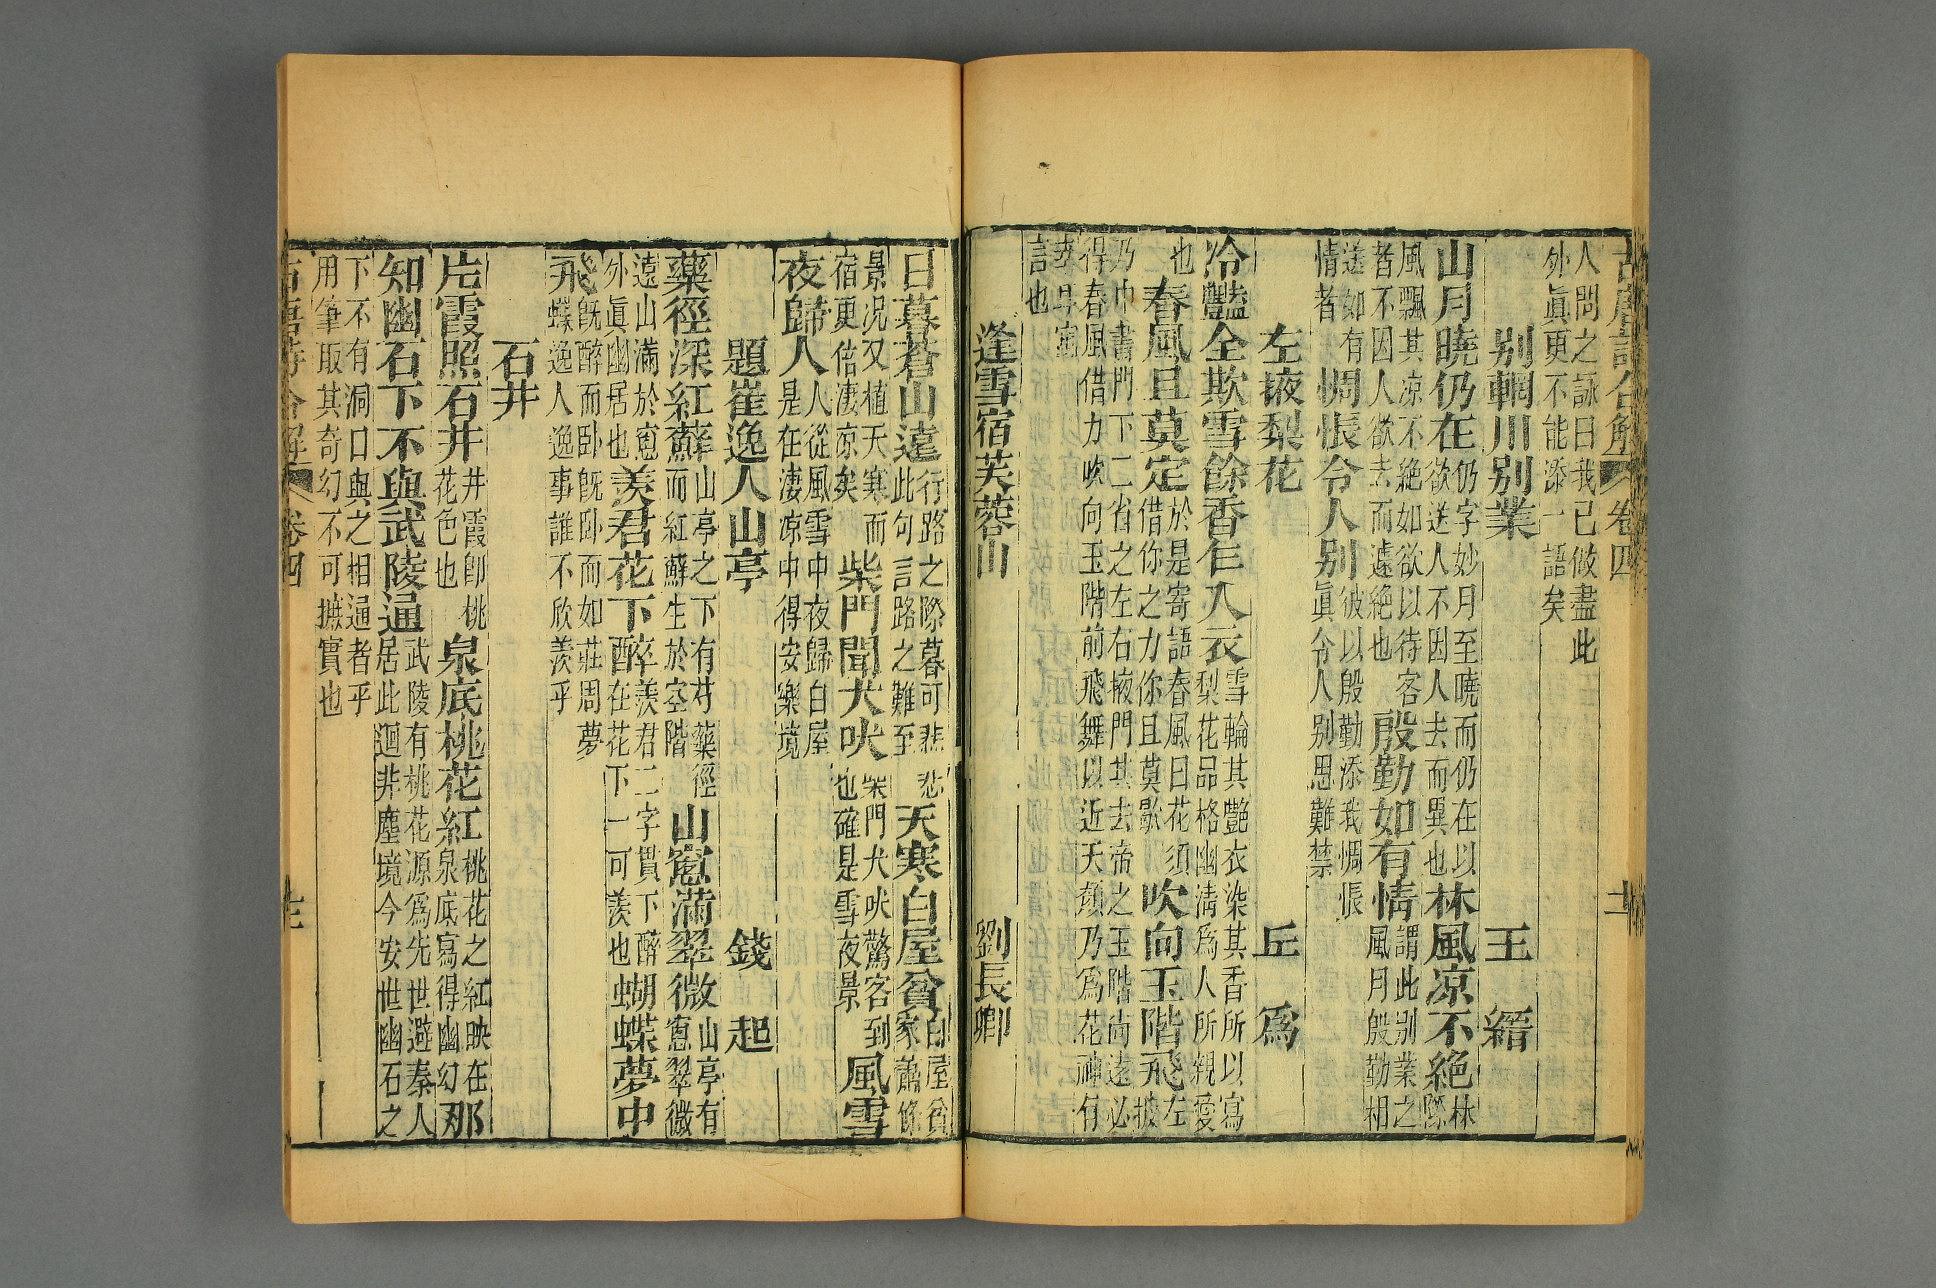 古唐詩合解 卷四
人問之詠曰我已做盡此
外眞更不能添一語矣
別輞川別業 王縉
山月曉仍在 仍字妙月至曉而仍在以
欲送人不因人去而異也 林風凉不絕 林
際
風飄其凉不絕如欲以待客
者不因人欲去而遽絕也 殷勤如有情 謂此別業之
風月殷勤相
送如有
情者 惆悵令人別 彼以殷勤添我惆悵
眞令人別思難禁
左掖梨花 丘爲
冷豔全欺雪餘香乍入衣 雪輪其艷衣染其香所以寫
梨花品格幽淸爲人所親愛
也 春風且莫定 於是寄語春風曰花須
借你之力你且莫歇 吹向玉階飛 左
掖
乃中書門下二省之左右掖門其去帝之玉階尚遠必
得春風借力吹向玉階前飛舞以近天顏乃爲花神有
幸耳寓
言也
逢雪宿芙蓉山 劉長卿
日暮蒼山遠 行路之際暮可悲
此句言路之難至 悲 天寒白屋貧 白屋貧
家蕭條
景况又植天寒而
宿更倍凄凉矣 柴門聞犬吠 柴門犬吠驚客到
也確是雪夜景 風雪
夜歸人 人從風雪中夜歸白屋
是在凄凉中得安樂境
題崔逸人山亭 錢起
藥徑深紅蘚 山亭之下有芍藥徑
而紅蘚生於空階 山窻滿翠微 山亭有
窻翠微
遠山滿於窻
外眞幽居也 羨君花下醉 羨君二字貫下醉
在花下一可羨也 蝴蝶夢中
飛 旣醉而卧旣卧而如莊周夢
蝶逸人逸事誰不欣羨乎
石井
片霞照石井 井霞卽桃
花色也 泉底桃花紅 桃花之紅映在
泉底寫得幽幻 那
知幽石下不與武陵通 武陵有桃花源爲先世避秦人
居此迴非塵境今安世幽石之
下不有洞口與之相通者乎
用筆取其奇幻不可摭實也
古唐詩合解 卷四